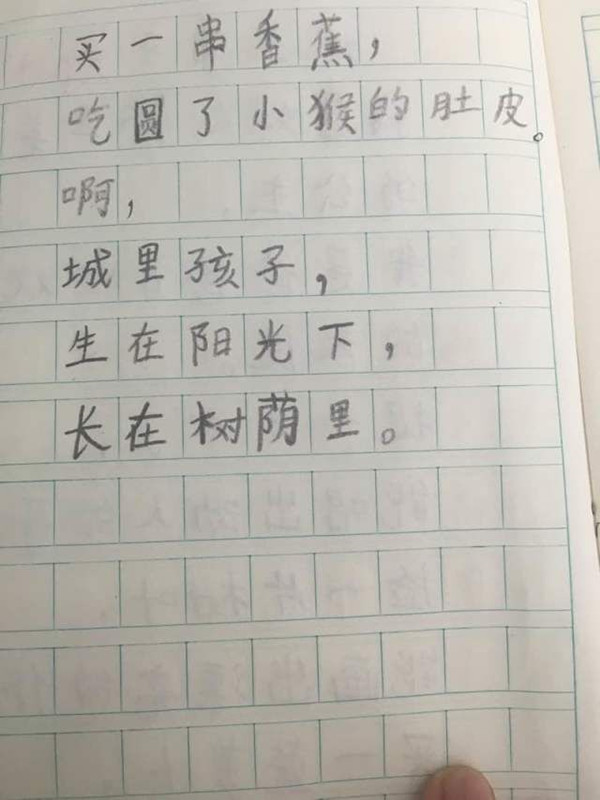 买一串香蕉，
吃圆了小猴的肚皮。
啊，
城里孩子，
生在阳光下，
长在树荫里。